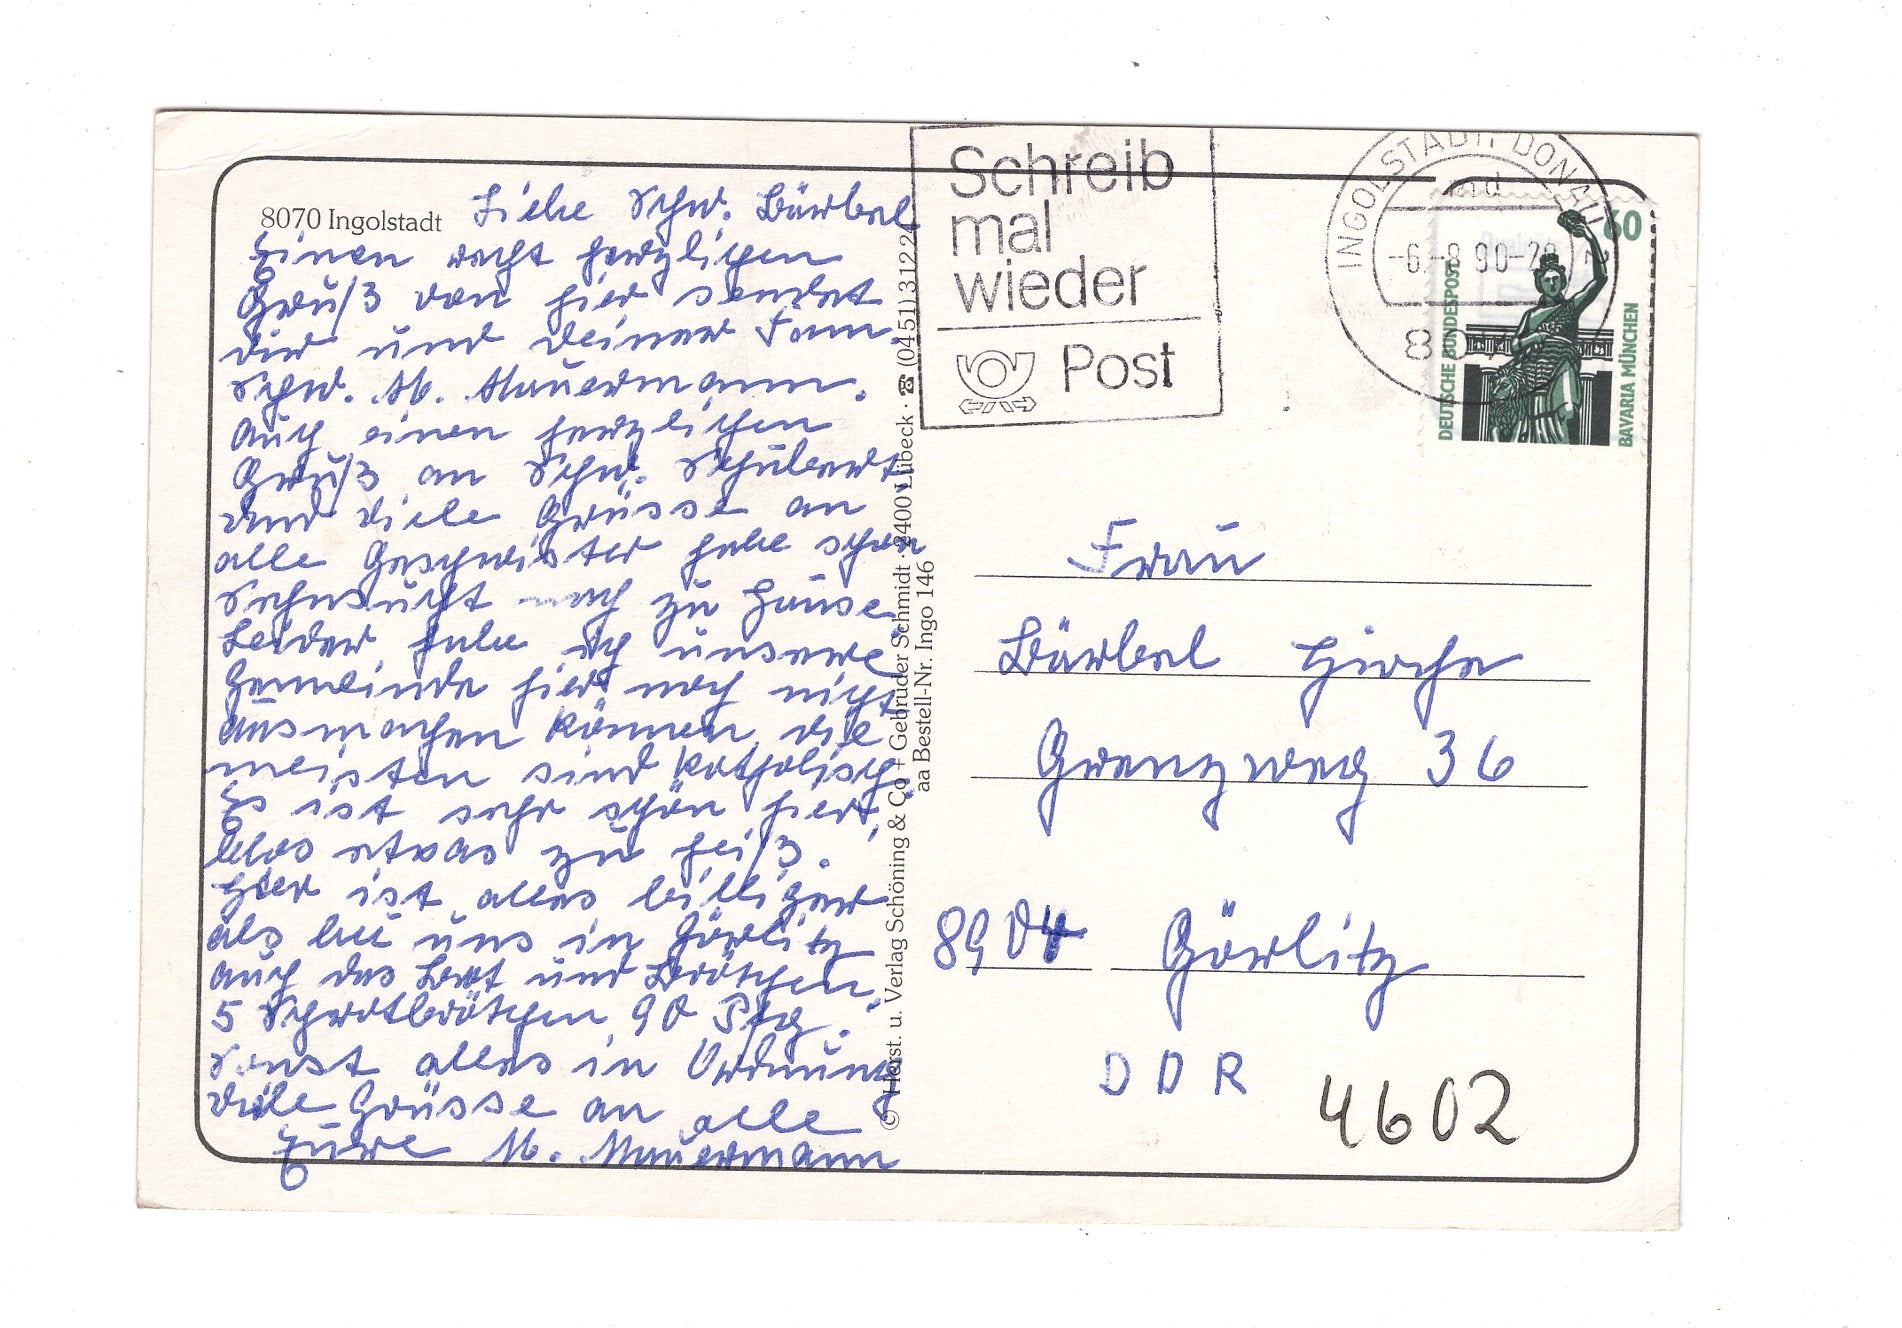 8070 Ingolstadt
Liebe Schw. Bärbel
Einen recht herzlichen
Gruß von hier sendet
dir und deiner Fam.
Schw. M. Mauermann.
auch einen herzlichen
Gruß an Schw. Schubert
und viele Grüsse an
alle Geschwister habe schon
Sehnsucht nach zu Hause.
Leider habe ich unsere
Gemeinde hier noch nicht
ausmachen können, die
meisten sind katholisch.
Es ist sehr schön hier,
blos etwas zu heiß.
Hier ist alles billiger
als bei uns in Görlitz
auch das Brot und Brötchen.
5 Schrotbrötchen 90 Pfg.
Sonst alles in Ordnung
viele Grüsse an alle
Eure M. Mauermann
© Herst. u. Verlag Schöning & Co + Gebrüder Schmidt · 2400 Lübeck · ☎ (0451) 31224
aa Bestell-Nr. Ingo 146
Schreib
mal
wieder
Post
INGOLSTADT, DONAU 2
-6.-8.90-
807
60
DEUTSCHE BUNDESPOST
BAVARIA MÜNCHEN
Frau
Bärbel Hirche
Grenzweg 36
8904 Görlitz
DDR
4602